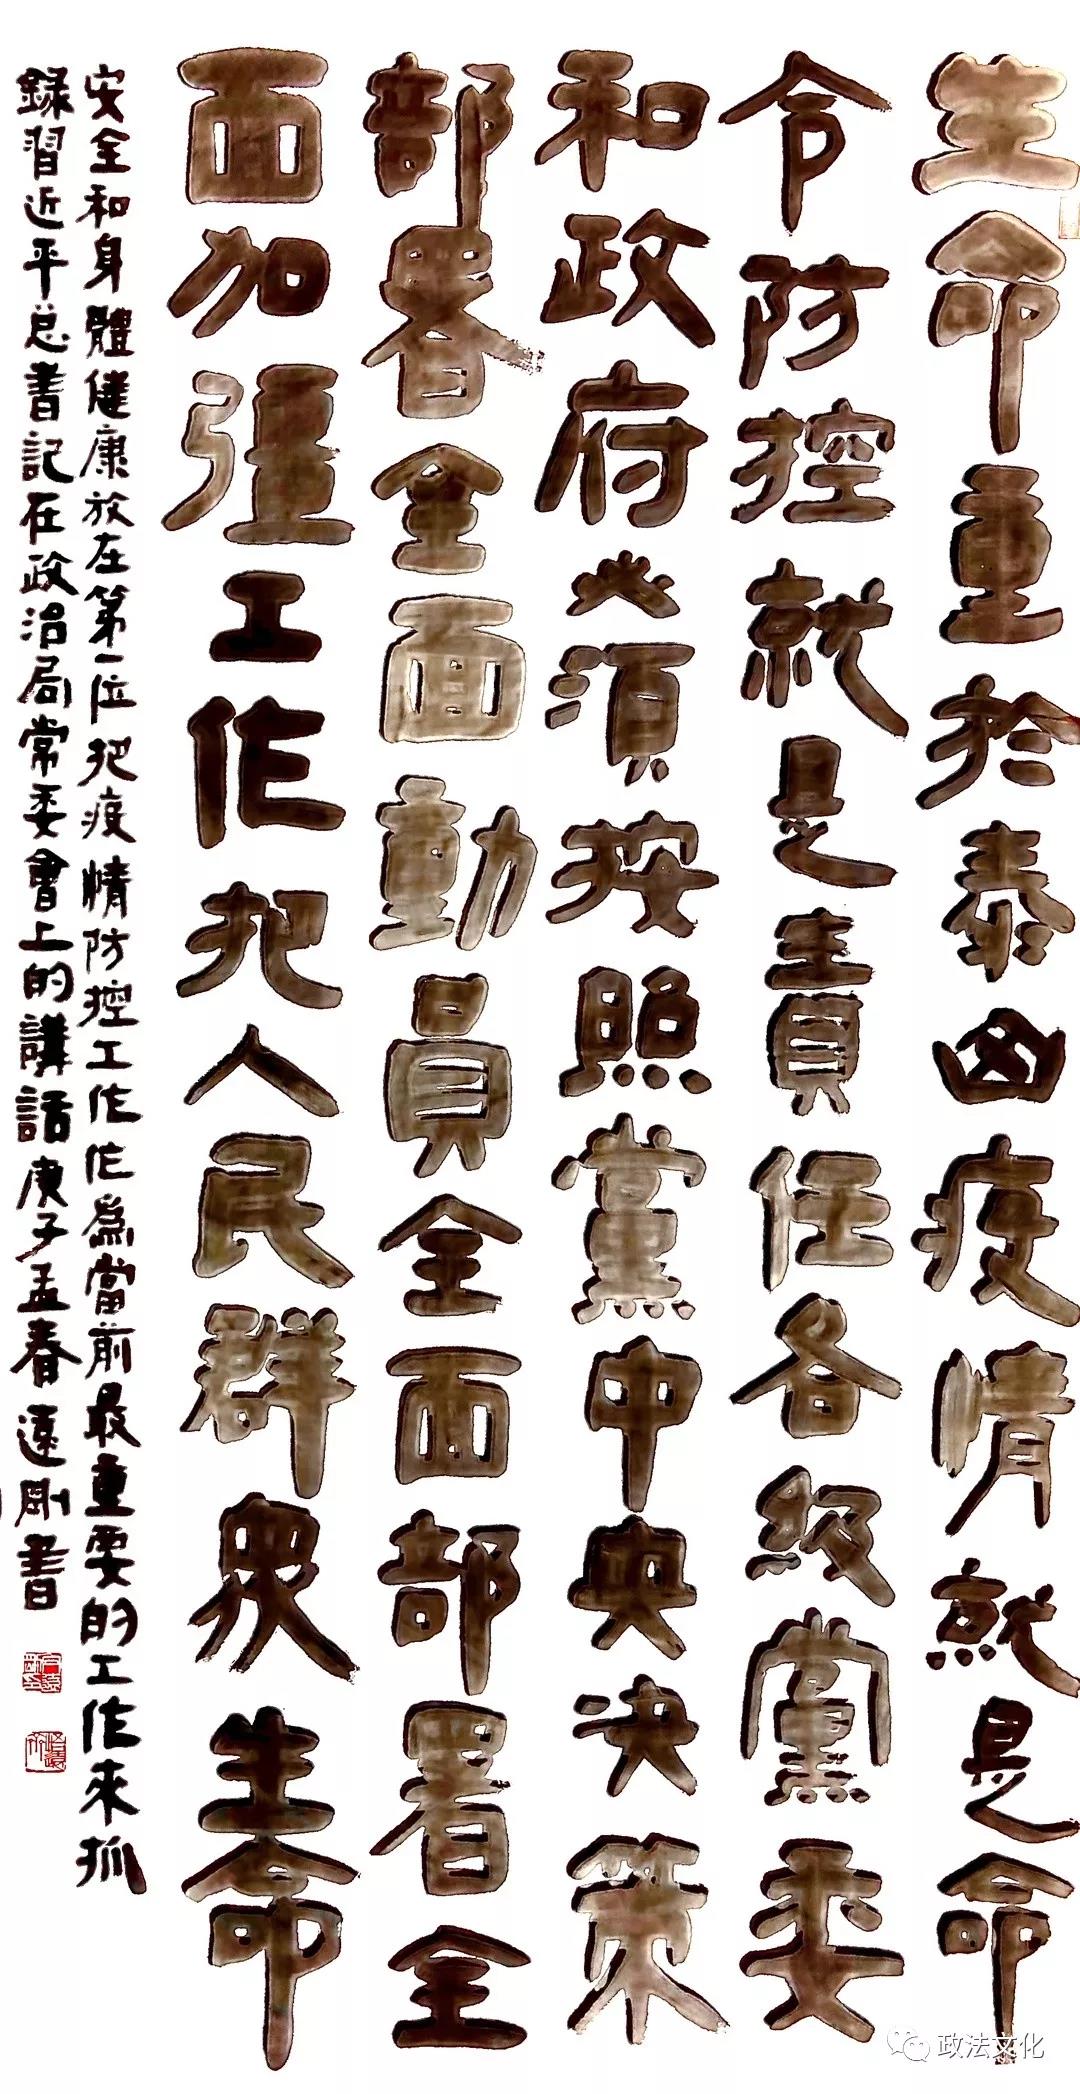 生命重於泰山疫情就是命
令防控就是責任各級黨委
和政府必須按照黨中央决策
部署全面動員全面部署全
面加彊工作把人民群眾生命
安全和身體健康放在第一位把疫情防控工作作為當前最重要的工作來抓
錄習近平总書記在政治局常委會上的講話庚子孟春遠剛書
政法文化